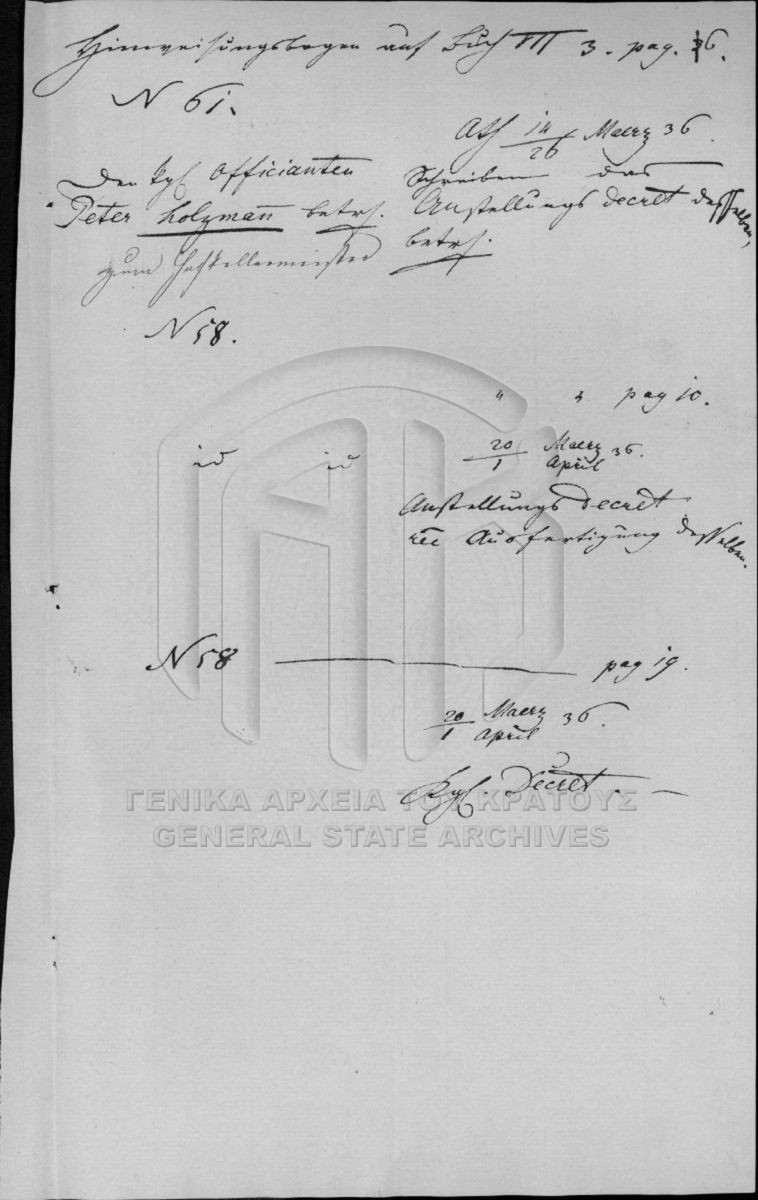 Hinweisungsbogen auf Buch VII 3. pag. 6.
N 61.
Ath 14/26 Maerz 36.
Den kgl Officianten
Peter Holzmann betrf.
zum Hofkellermeister
Schreiben das
Anstellungs Decret desselben,
betrf.
N 58.
" " pag 10.
id id 20/1 Maerz April 36.
Anstellungs Decret
Ausfertigung desselben.
N 58 — pag 19.
20/1 Maerz April 36.
Kgl. Decret. —
ΓΕΝΙΚΑ ΑΡΧΕΙΑ ΤΟΥ ΚΡΑΤΟΥΣ
GENERAL STATE ARCHIVES